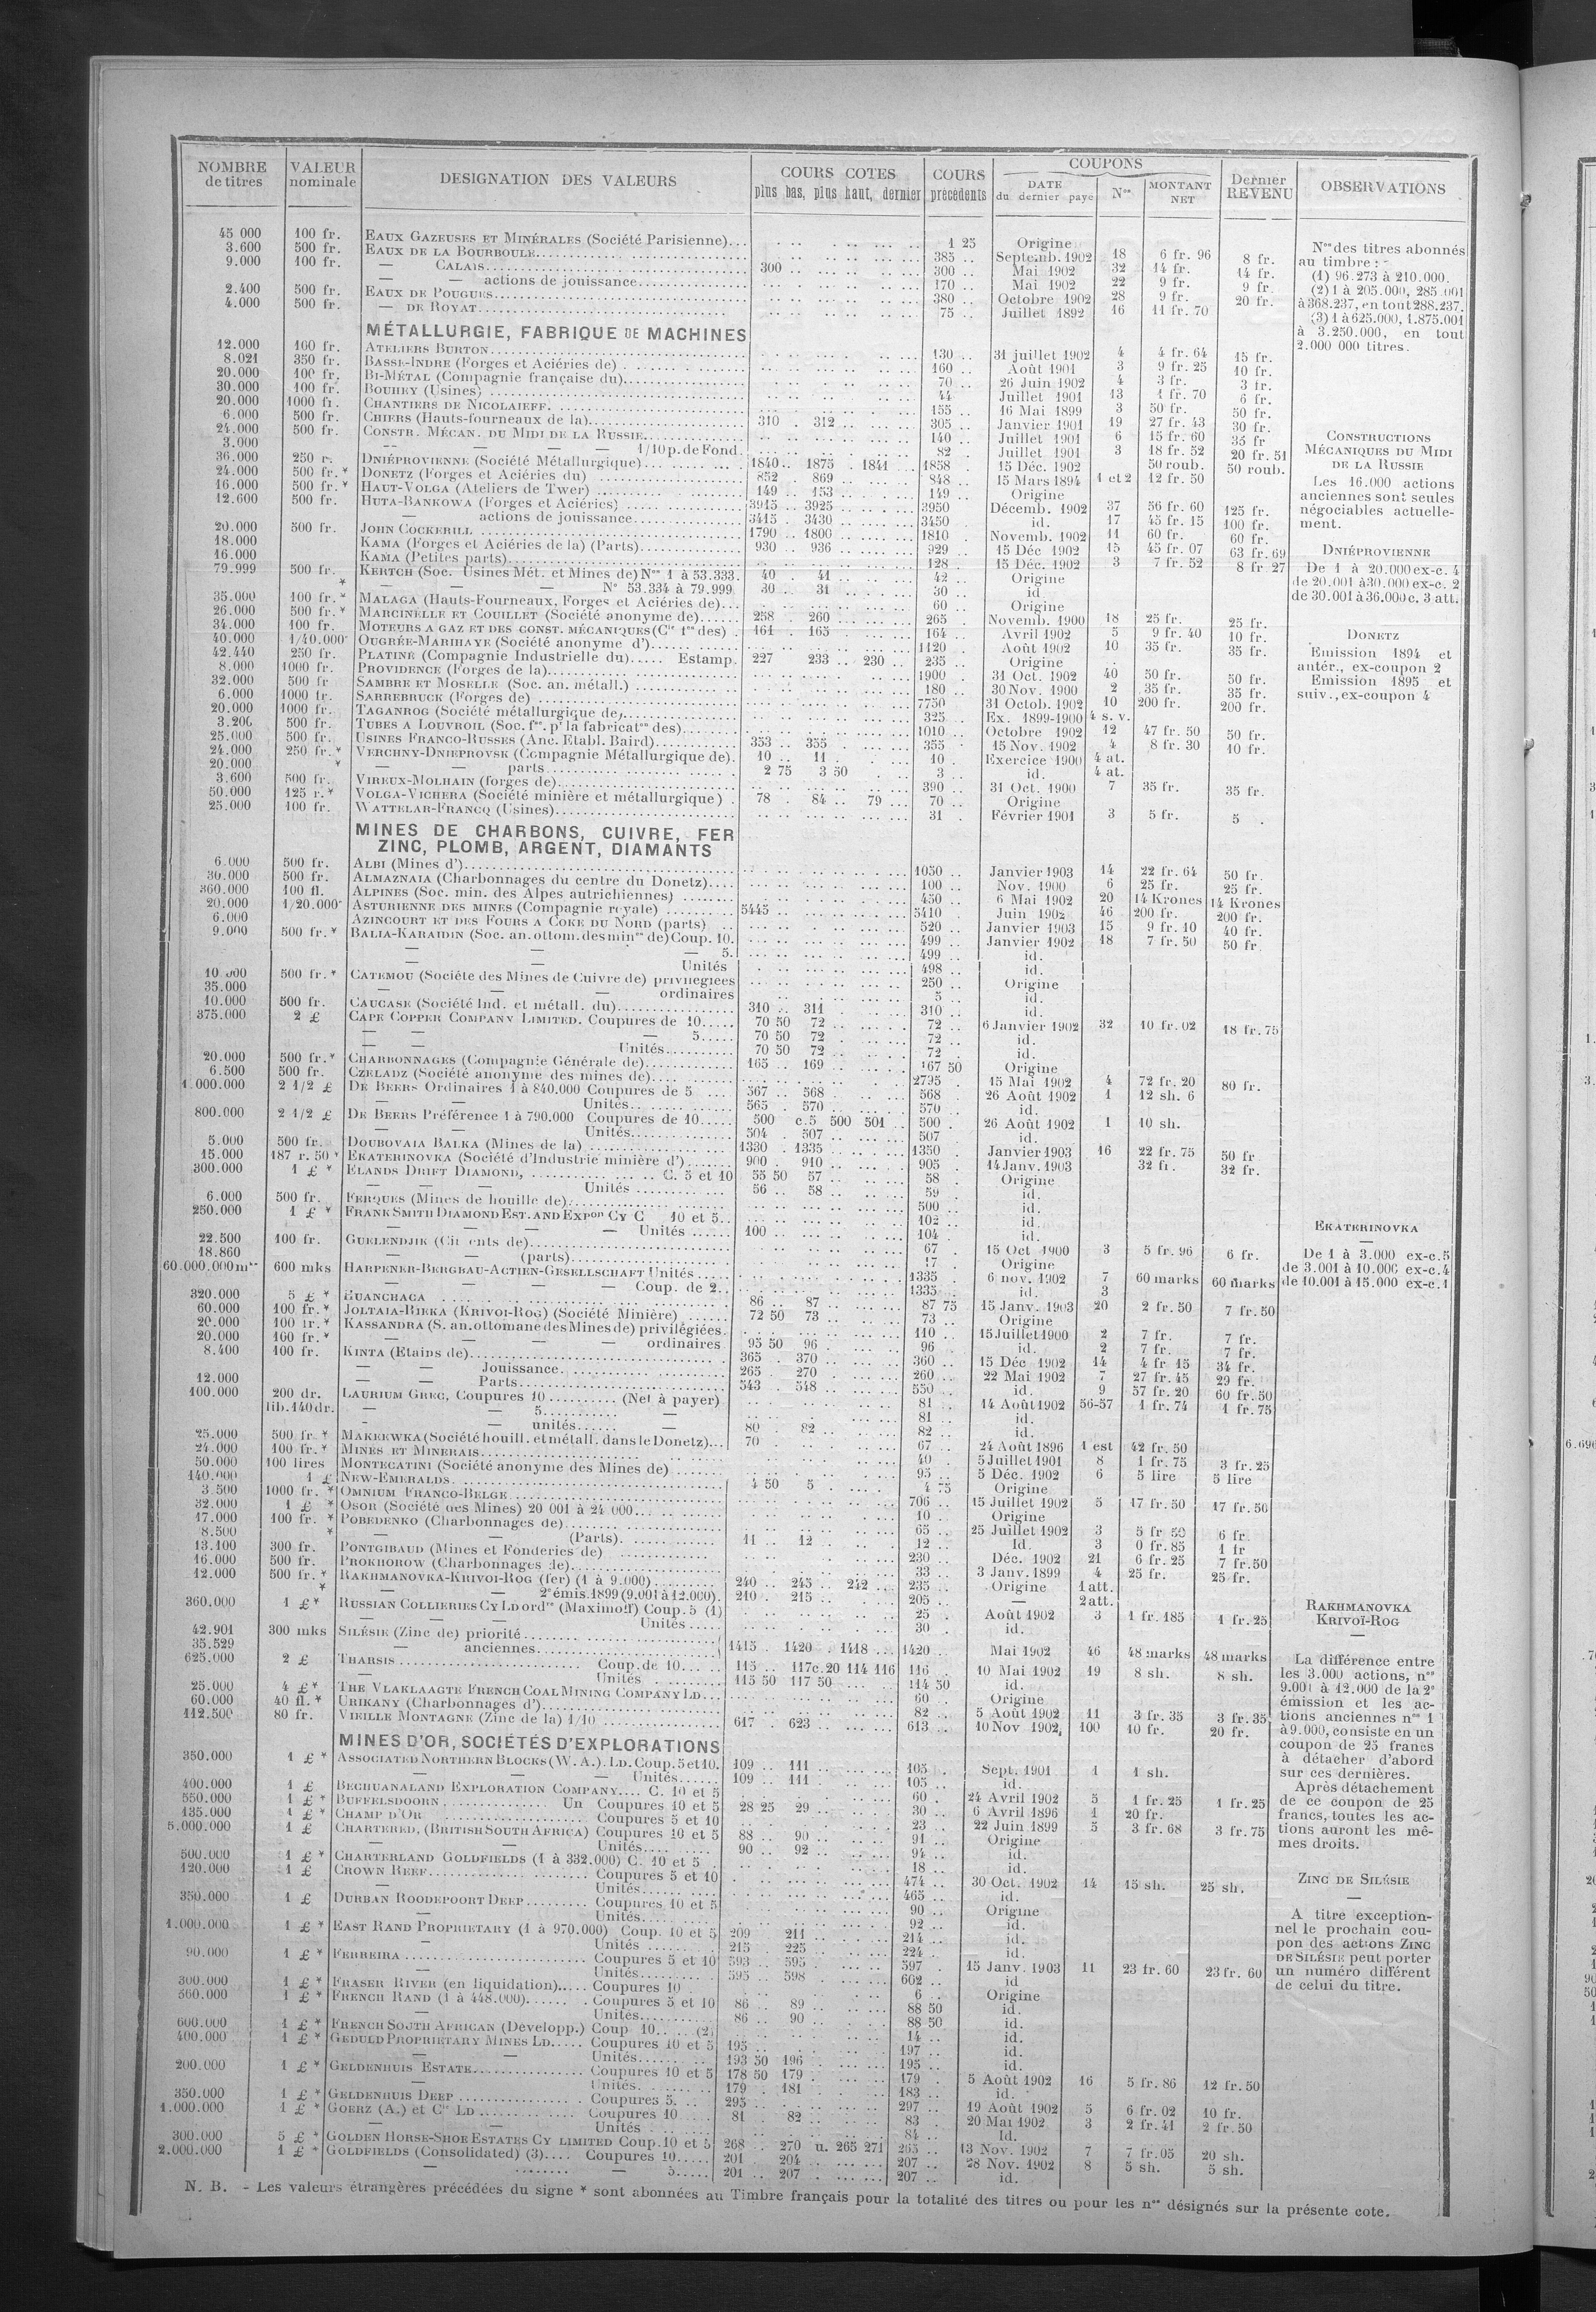 NOMBRE de titres | VALEUR nominale | DESIGNATION DES VALEURS | COURS COTES plus bas, plus haut, dernier | COURS précédents | COUPONS DATE du dernier payé | Nos | MONTANT NET | Dernier REVENU | OBSERVATIONS
45 000 100 fr. EAUX GAZEUSES ET MINÉRALES (Société Parisienne) 1 25 Origine
3.600 500 fr. EAUX DE LA BOURBOULE 385 Septemb. 1902 18 6 fr. 96 8 fr.
9.000 100 fr. — CALAIS 300 300 Mai 1902 32 14 fr. 14 fr.
— actions de jouissance 170 Mai 1902 22 9 fr. 9 fr.
2.400 500 fr. EAUX DE POUGUES 380 Octobre 1902 28 9 fr. 20 fr.
4.000 500 fr. — DE ROYAT 75 Juillet 1892 16 11 fr. 70
MÉTALLURGIE, FABRIQUE DE MACHINES
12.000 100 fr. ATELIERS BURTON 130 31 juillet 1902 4 4 fr. 64 15 fr.
8.021 350 fr. BASSE-INDRE (Forges et Aciéries de) 160 Août 1901 3 9 fr. 25 10 fr.
20.000 100 fr. BI-MÉTAL (Compagnie française du) 70 26 Juin 1902 4 3 fr. 3 fr.
30.000 100 fr. BOUHEY (Usines) 44 Juillet 1901 13 1 fr. 70 6 fr.
20.000 1000 fr. CHANTIERS DE NICOLAIEFF 155 16 Mai 1899 3 50 fr. 50 fr.
6.000 500 fr. CHIERS (Hauts-fourneaux de la) 310 312 305 Janvier 1901 19 27 fr. 43 30 fr.
24.000 500 fr. CONSTR. MÉCAN. DU MIDI DE LA RUSSIE 140 Juillet 1901 6 15 fr. 60 35 fr
3.000 — — — 1/10 p. de Fond. 82 Juillet 1901 3 18 fr. 52 20 fr. 51
36.000 250 r. DNIÉPROVIENNE (Société Métallurgique) 1840 1875 1841 1858 15 Déc. 1902 50 roub. 50 roub.
24.000 500 fr. * DONETZ (Forges et Aciéries du) 852 869 848 15 Mars 1894 1 et 2 12 fr. 50
16.000 500 fr. * HAUT-VOLGA (Ateliers de Twer) 149 153 149 Origine
12.600 500 fr. HUTA-BANKOWA (Forges et Aciéries) 3915 3925 3950 Décemb. 1902 37 56 fr. 60 125 fr.
— actions de jouissance 3415 3430 3450 id. 17 45 fr. 15 100 fr.
20.000 500 fr. JOHN COCKERILL 1790 1800 1810 Novemb. 1902 11 60 fr. 60 fr.
18.000 KAMA (Forges et Aciéries de la) (Parts) 930 936 929 15 Déc 1902 15 45 fr. 07 63 fr. 69
16.000 KAMA (Petites parts) 128 15 Déc. 1902 3 7 fr. 52 8 fr 27
79.999 500 fr. KERTCH (Soc. Usines Mét. et Mines de) Nos 1 à 53.333. 40 41 42 Origine
* — — N° 53.334 à 79.999 30 31 30 id
35.000 100 fr. * MALAGA (Hauts-Fourneaux, Forges et Aciéries de) 60 Origine
26.000 500 fr. * MARCINELLE ET COUILLET (Société anonyme de) 258 260 265 Novemb. 1900 18 25 fr. 25 fr.
34.000 100 fr. MOTEURS A GAZ ET DES CONST. MÉCANIQUES (Cie fse des) 161 165 164 Avril 1902 5 9 fr. 40 10 fr.
40.000 1/40.000e OUGRÉE-MARIHAYE (Société anonyme d') 1120 Août 1902 10 35 fr. 35 fr.
42.440 250 fr. PLATINE (Compagnie Industrielle du) Estamp. 227 233 230 235 Origine
8.000 1000 fr. PROVIDENCE (Forges de la) 1900 31 Oct. 1902 40 50 fr. 50 fr.
32.000 500 fr SAMBRE ET MOSELLE (Soc. an. métall.) 180 30 Nov. 1900 2 35 fr. 35 fr.
6.000 1000 fr. SARREBRUCK (Forges de) 7750 31 Octob. 1902 10 200 fr. 200 fr.
20.000 1000 fr. TAGANROG (Société métallurgique de) 325 Ex. 1899-1900 4 s. v.
3.200 500 fr. TUBES A LOUVROIL (Soc. fse. pr la fabricaton des) 1010 Octobre 1902 12 47 fr. 50 50 fr.
25.000 500 fr. USINES FRANCO-RUSSES (Anc. Etabl. Baird) 353 355 355 15 Nov. 1902 4 8 fr. 30 10 fr.
24.000 250 fr. * VERCHNY-DNIEPROVSK (Compagnie Métallurgique de). 10 11 10 Exercice 1900 4 at.
20.000 * — — parts 2 75 3 50 3 id. 4 at.
3.600 500 fr. VIREUX-MOLHAIN (forges de) 390 31 Oct. 1900 7 35 fr. 35 fr.
50.000 125 r. * VOLGA-VICHERA (Société minière et métallurgique) 78 84 79 70 Origine
25.000 100 fr. WATTELAR-FRANCQ (Usines) 31 Février 1901 3 5 fr. 5
MINES DE CHARBONS, CUIVRE, FER
ZINC, PLOMB, ARGENT, DIAMANTS
6.000 500 fr. ALBI (Mines d') 1050 Janvier 1903 14 22 fr. 64 50 fr.
30.000 500 fr. ALMAZNAIA (Charbonnages du centre du Donetz) 100 Nov. 1900 6 25 fr. 25 fr.
360.000 100 fl. ALPINES (Soc. min. des Alpes autrichiennes) 450 6 Mai 1902 20 14 Krones 14 Krones
20.000 1/20.000e ASTURIENNE DES MINES (Compagnie royale) 5445 5410 Juin 1902 46 200 fr. 200 fr.
6.000 AZINCOURT ET DES FOURS A COKE DU NORD (parts) 520 Janvier 1903 15 9 fr. 10 40 fr.
9.000 500 fr. * BALIA-KARAIDIN (Soc. an. ottom. des mines de) Coup. 10. 499 Janvier 1902 18 7 fr. 50 50 fr
— — 5. 499 id.
— — Unités 498 id.
10.000 500 fr. * CATEMOU (Société des Mines de Cuivre de) privilégiées 250 Origine
35.000 — — ordinaires 5 id.
10.000 500 fr. CAUCASE (Société Ind. et métall. du) 310 311 310 id.
375.000 2 £ CAPE COPPER COMPANY LIMITED. Coupures de 10 70 50 72 72 6 Janvier 1902 32 10 fr. 02 18 fr. 75
— — — 5 70 50 72 72 id.
— — Unités 70 50 72 72 id.
20.000 500 fr. * CHARBONNAGES (Compagnie Générale de) 165 169 167 50 Origine
6.500 500 fr. CZELADZ (Société anonyme des mines de) 2795 15 Mai 1902 4 72 fr. 20 80 fr.
1.000.000 2 1/2 £ DE BEERS Ordinaires 1 à 840.000 Coupures de 5 567 568 568 26 Août 1902 1 12 sh. 6
— — Unités 565 570 570 id.
800.000 2 1/2 £ DE BEERS Préférence 1 à 790.000 Coupures de 10 500 c.5 500 501 500 26 Août 1902 1 10 sh.
— — Unités 504 507 507 id.
5.000 500 fr. DOUBOVAIA BALKA (Mines de la) 1330 1335 1350 Janvier 1903 16 22 fr. 75 50 fr
15.000 187 r. 50 * EKATERINOVKA (Société d'Industrie minière d') 900 910 905 14 Janv. 1903 32 fr. 32 fr.
300.000 1 £ * ELANDS DRIFT DIAMOND, C. 5 et 10 55 50 57 58 Origine
— — — Unités 56 58 59 id.
6.000 500 fr. FERQUES (Mines de houille de) 500 id.
250.000 1 £ * FRANK SMITH DIAMOND EST. AND EXPon CY C 10 et 5 102 id.
— — — Unités 100 104 id.
22.500 100 fr. GUELENDJIK (Ciments de) 67 15 Oct 1900 3 5 fr. 96 6 fr.
18.860 — — (parts) 17 Origine
60.000.000 mks 600 mks HARPENER-BERGBAU-ACTIEN-GESELLSCHAFT Unités 1335 6 nov. 1902 7 60 marks 60 marks
— — — Coup. de 2 1335 id. 3
320.000 5 £ * HUANCHACA 86 87 87 75 15 Janv. 1903 20 2 fr. 50 7 fr. 50
60.000 100 fr. * JOLTAIA-RIEKA (KRIVOI-ROG) (Société Minière) 72 50 73 73 Origine
20.000 100 fr. * KASSANDRA (S. an. ottomane des Mines de) privilégiées. 110 15 Juillet 1900 2 7 fr. 7 fr.
20.000 100 fr. * — — — ordinaires 95 50 96 96 id. 2 7 fr. 7 fr.
8.400 100 fr. KINTA (Etains de) 365 370 360 15 Déc 1902 14 4 fr 15 34 fr.
— — Jouissance 265 270 260 22 Mai 1902 7 27 fr. 45 29 fr.
12.000 — — Parts 543 548 550 id. 9 57 fr. 20 60 fr. 50
100.000 200 dr. LAURIUM GREC, Coupures 10 (Net à payer) 81 14 Août 1902 56-57 1 fr. 74 1 fr. 75
lib. 140 dr. — — 5 — 81 id.
- — unités — 80 82 82 id.
25.000 500 fr * MAKEEWKA (Société houill. et métall. dans le Donetz) 70 67 24 Août 1896 1 est 42 fr. 50
24.000 100 fr. * MINES ET MINERAIS 40 5 Juillet 1901 8 1 fr. 75 3 fr. 25
50.000 100 lires MONTECATINI (Société anonyme des Mines de) 95 5 Déc. 1902 6 5 lire 5 lire
140.000 1 £ NEW-EMERALDS 4 50 5 4 75 Origine
3.500 1000 fr. * OMNIUM FRANCO-BELGE 706 15 Juillet 1902 5 17 fr. 50 17 fr. 50
32.000 1 £ * OSOR (Société des Mines) 20 001 à 24 000 10 Origine
17.000 100 fr. * POBEDENKO (Charbonnages de) 65 25 Juillet 1902 3 5 fr 50 6 fr.
8.500 * — — (Parts). 11 12 12 Id. 3 0 fr. 85 1 fr
13.100 300 fr. PONTGIBAUD (Mines et Fonderies de) 230 Déc. 1902 21 6 fr. 25 7 fr. 50
16.000 500 fr. PROKHOROW (Charbonnages de) 33 3 Janv. 1899 4 25 fr. 25 fr.
12.000 500 fr. * RAKHMANOVKA-KRIVOI-ROG (fer) (1 à 9.000) 240 245 242 235 Origine 1 att.
* — — 2e émis. 1899 (9.001 à 12.000). 210 215 205 — 2 att.
360.000 1 £ * RUSSIAN COLLIERIES CY LD ordre (Maximoff) Coup. 5 (1) 25 Août 1902 3 1 fr. 185 1 fr. 25
— — — Unités 30 id.
42.901 300 mks SILÉSIE (Zinc de) priorité
35.529 — anciennes 1415 1420 1418 1420 Mai 1902 46 48 marks 48 marks
625.000 2 £ THARSIS Coup. de 10 115 117 c. 20 114 116 116 10 Mai 1902 19 8 sh. 8 sh.
— Unités 115 50 117 50 114 50 id.
25.000 4 £ * THE VLAKLAAGTE FRENCH COAL MINING COMPANY LD 60 Origine
60.000 40 fl. * URIKANY (Charbonnages d') 82 5 Août 1902 11 3 fr. 35 3 fr. 35
112.500 80 fr. VIEILLE MONTAGNE (Zinc de la) 1/10 617 623 613 10 Nov 1902 100 10 fr. 20 fr.
MINES D'OR, SOCIÉTÉS D'EXPLORATIONS
350.000 1 £ * ASSOCIATED NORTHERN BLOCKS (W. A.). LD. Coup. 5 et 10. 109 111 105 Sept. 1901 1 1 sh.
— — — Unités 109 111 105 id.
400.000 1 £ BECHUANALAND EXPLORATION COMPANY C. 10 et 5 60 24 Avril 1902 5 1 fr. 25 1 fr. 25
550.000 1 £ * BUFFELSDOORN Un Coupures 10 et 5 28 25 29 30 6 Avril 1896 1 20 fr.
135.000 1 £ * CHAMP D'OR Coupures 5 et 10 23 22 Juin 1899 5 3 fr. 68 3 fr. 75
5.000.000 1 £ CHARTERED, (BRITISH SOUTH AFRICA) Coupures 10 et 5 88 90 91 Origine
— — — Unités 90 92 94 id.
500.000 1 £ * CHARTERLAND GOLDFIELDS (1 à 332.000) C. 10 et 5 18 id.
120.000 1 £ CROWN REEF Coupures 5 et 10 474 30 Oct. 1902 14 15 sh. 25 sh.
— Unités 465 id.
350.000 1 £ DURBAN ROODEPOORT DEEP Coupures 10 et 5 90 Origine
— Unités 92 id.
1.000.000 1 £ * EAST RAND PROPRIETARY (1 à 970.000) Coup. 10 et 5 209 211 214 id.
— Unités 215 225 224 id.
90.000 1 £ * FERREIRA Coupures 5 et 10 593 595 597 15 Janv. 1903 11 23 fr. 60 23 fr. 60
— Unités 595 598 602 id
300.000 1 £ * FRASER RIVER (en liquidation) Coupures 10 6 Origine
360.000 1 £ * FRENCH RAND (1 à 448.000) Coupures 5 et 10 86 89 88 50 id.
— Unités 86 90 88 50 id.
600.000 1 £ * FRENCH SOUTH AFRICAN (Développ.) Coup 10 (2) 14 id.
400.000 1 £ * GEDULD PROPRIETARY MINES LD Coupures 10 et 5 195 197 id.
— — Unités 193 50 196 195 id.
200.000 1 £ * GELDENHUIS ESTATE Coupures 10 et 5 178 50 179 179 5 Août 1902 16 5 fr. 86 12 fr. 50
— Unités 179 181 183 id.
350.000 1 £ * GELDENHUIS DEEP Coupures 5. 295 297 19 Août 1902 5 6 fr. 02 10 fr.
1.000.000 1 £ * GOERZ (A.) et Cie LD Coupures 10 81 82 83 20 Mai 1902 3 2 fr. 41 2 fr. 50
— — Unités 84 Id.
300.000 5 £ * GOLDEN HORSE-SHOE ESTATES CY LIMITED Coup. 10 et 5 268 270 u. 265 271 265 13 Nov. 1902 7 7 fr. 05 20 sh.
2.000.000 1 £ * GOLDFIELDS (Consolidated) (3) Coupures 10 201 204 207 28 Nov. 1902 8 5 sh. 5 sh.
— — 5 201 207 207 id.
Nos des titres abonnés
au timbre : -
(1) 96.273 à 210.000.
(2) 1 à 205.000, 285.001
à 368.237, en tout 288.237.
(3) 1 à 625.000, 1.875.001
à 3.250.000, en tout
2.000 000 titres.
CONSTRUCTIONS
MÉCANIQUES DU MIDI
DE LA RUSSIE
Les 16.000 actions
anciennes sont seules
négociables actuelle-
ment.
DNIÉPROVIENNE
De 1 à 20.000 ex-c. 4
de 20.001 à 30.000 ex-c. 2
de 30.001 à 36.000 c. 3 att.
DONETZ
Emission 1894 et
antér., ex-coupon 2
Emission 1895 et
suiv., ex-coupon 4
EKATERINOVKA
De 1 à 3.000 ex-c. 5
de 3.001 à 10.000 ex-c. 4
de 10.001 à 15.000 ex-c. 1
RAKHMANOVKA
KRIVOÏ-ROG
La différence entre
les 3.000 actions, nos
9.001 à 12.000 de la 2e
émission et les ac-
tions anciennes nos 1
à 9.000, consiste en un
coupon de 25 francs
à détacher d'abord
sur ces dernières.
Après détachement
de ce coupon de 25
francs, toutes les ac-
tions auront les mê-
mes droits.
ZINC DE SILÉSIE
A titre exception-
nel le prochain cou-
pon des actions ZINC
DE SILÉSIE peut porter
un numéro différent
de celui du titre.
N. B. - Les valeurs étrangères précédées du signe * sont abonnées au Timbre français pour la totalité des titres ou pour les nos désignés sur la présente cote.